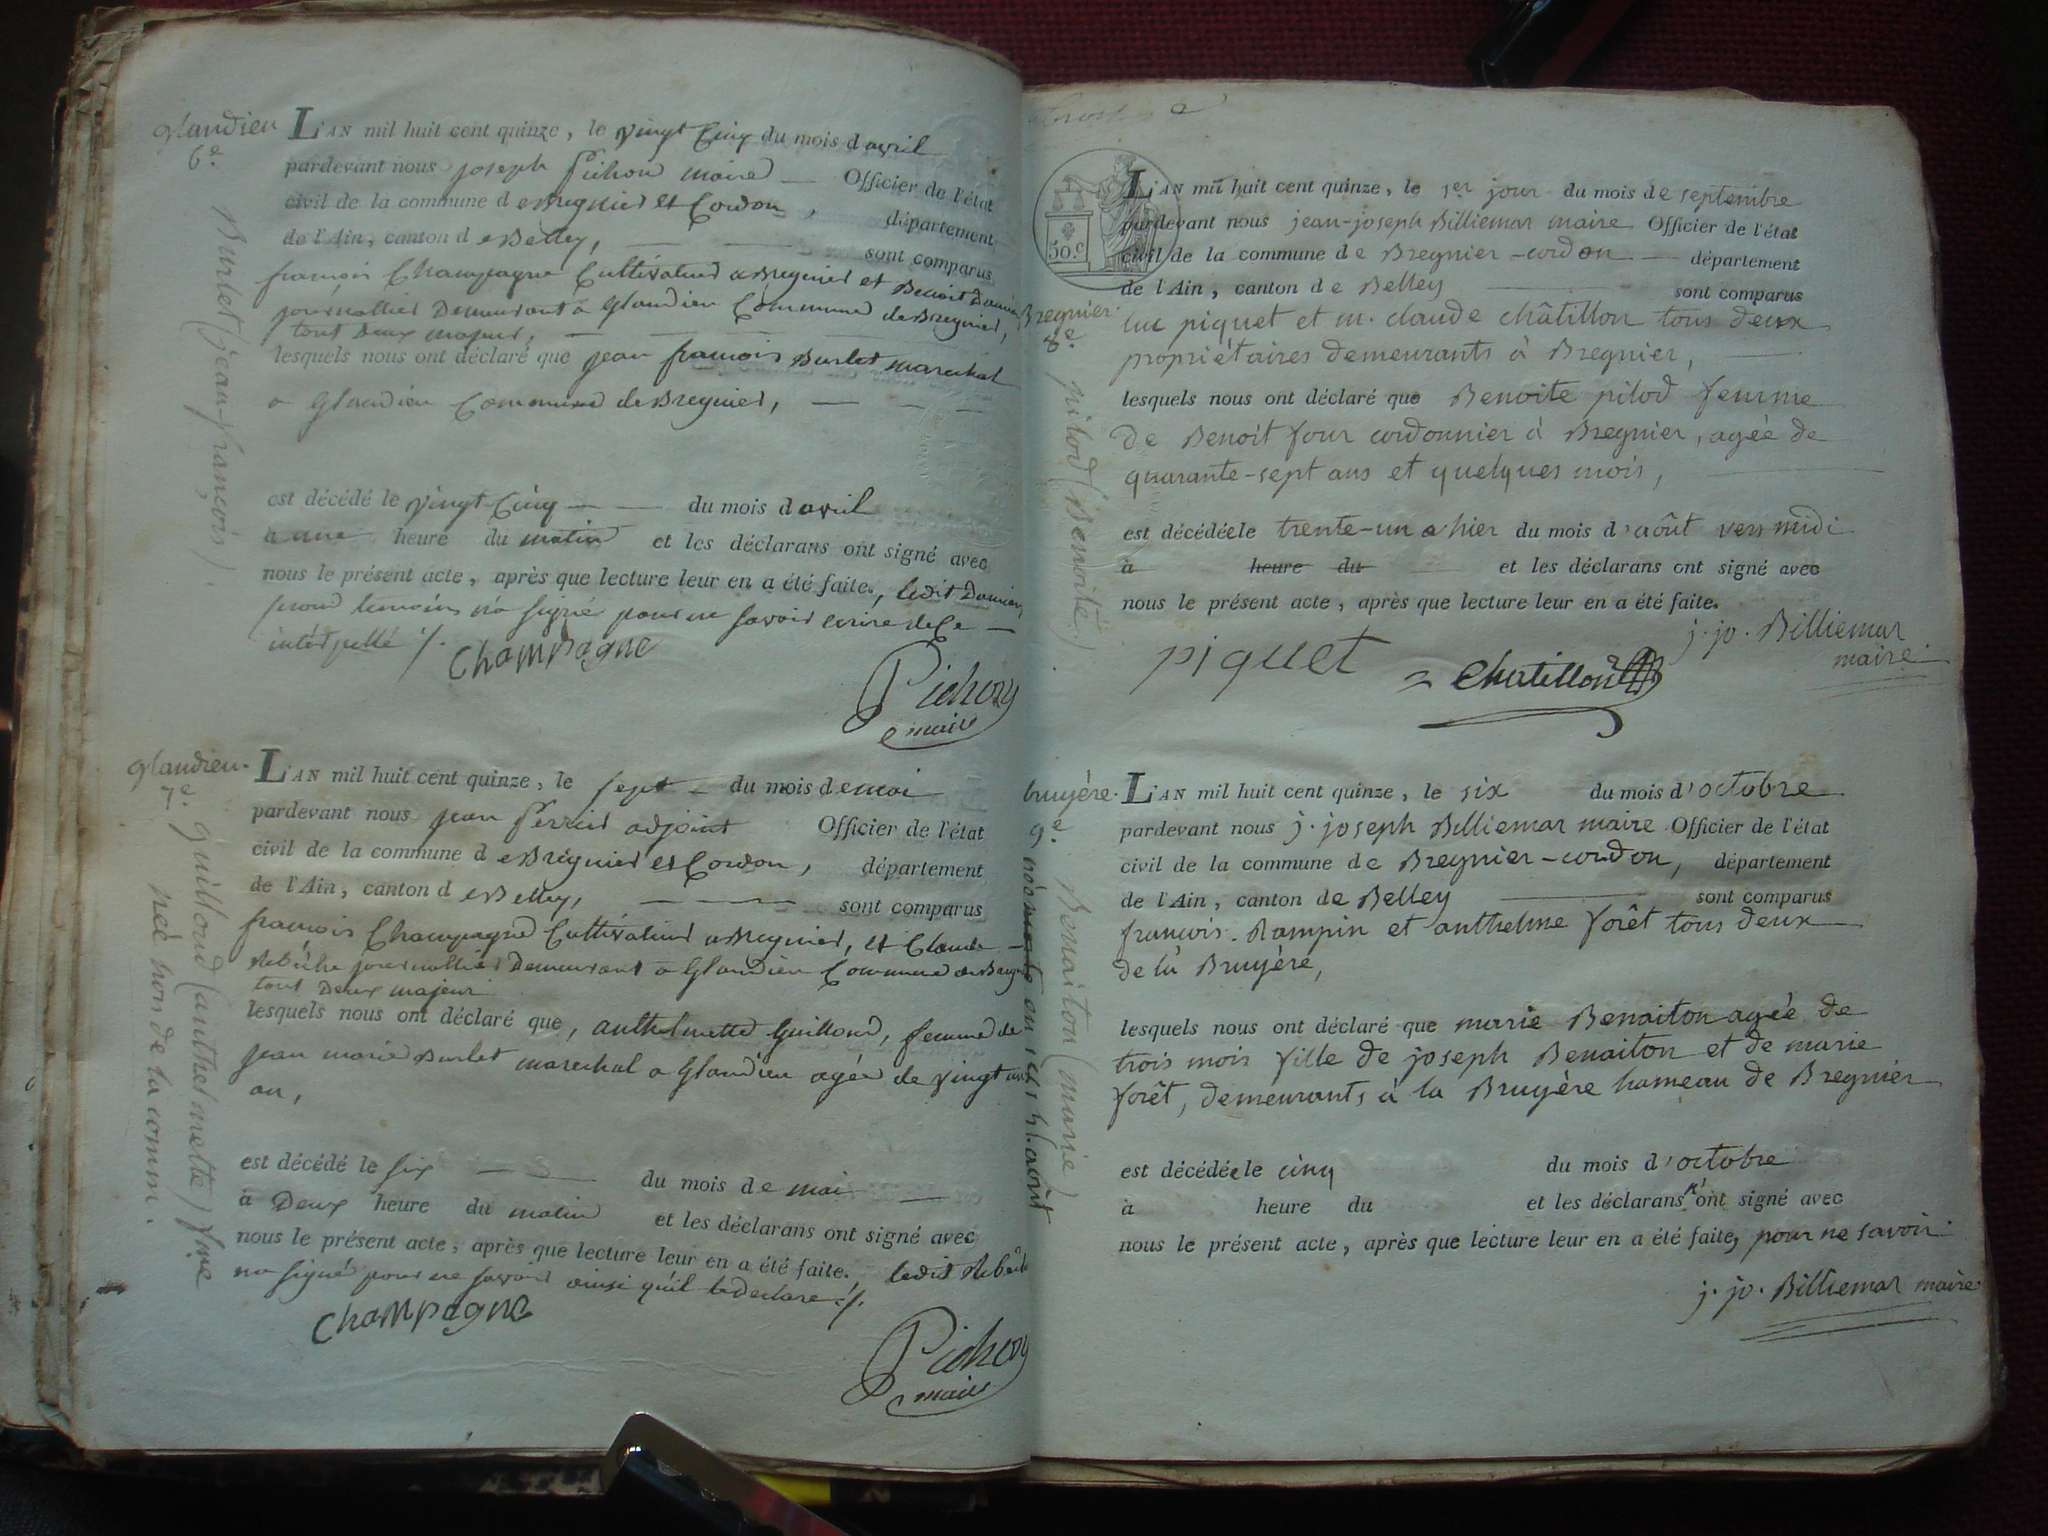 glandieu
6e.
Burlet (jean-françois).
L'AN mil huit cent quinze, le vingt Cinq du mois d avril
pardevant nous joseph Pichon maire — Officier de l'état
civil de la commune d eBregnier et Cordon, département
de l'Ain, canton d eBelley, — — sont comparus
françois Champagne Cultivateur a Bregnier et Benoit
journallier Demeurant a Glandieu Commune de Bregnier,
tout Deux majeur, —
lesquels nous ont déclaré que jean françois Burlet marechal
a Glandieu Commune de Bregnier, — — —
est décédé le vingt-Cinq — — du mois d avril
a une heure du matin et les déclarans ont signé avec
nous le présent acte, après que lecture leur en a été faite., ledit
temoins n'a signé pour ne savoir ecrire de Ce —
interpellé ./.
Champagne
Pichon
maire
glandieu.
7e.
guilloud (anthelmette) fme
née hors de la comm.
L'AN mil huit cent quinze, le sept — du mois d emai
pardevant nous jean Perrier adjoint Officier de l'état
civil de la commune d eBregnier et Cordon, département
de l'Ain, canton d eBelley, — — — sont comparus
françois Champagne Cultivateur a Bregnier, et Claude —
journallier Demeurant a Glandieu Commune de
tout Deux majeur
lesquels nous ont déclaré que, anthelmette Guilloud, femme de
jean marie Burlet marechal a Glandieu agée de vingt
an,
est décédé le six — — du mois d e mai —
à Deux heure du matin et les déclarans ont signé avec
nous le présent acte, après que lecture leur en a été faite., ledit
na signé pour ne savoir ainsi qu'il le declare ./.
Champagne
Pichon
maire
50 c.
Bregnier.
8e.
pilod (Benoite)
L'AN mil huit cent quinze, le 1er jour du mois de septembre
pardevant nous jean-joseph Billiemar maire Officier de l'état
civil de la commune de Bregnier-cordon — département
de l'Ain, canton de Belley — sont comparus
luc piquet et m. claude châtillon tous deux
propriétaires demeurants à Bregnier, —
lesquels nous ont déclaré que Benoite pilod femme
de Benoit four cordonnier à Bregnier, agée de
quarante-sept ans et quelques mois, —
est décédée le trente-un hier du mois d'août vers midi
à heure du et les déclarans ont signé avec
nous le présent acte, après que lecture leur en a été faite.
j. jo. Billiemar
maire.
piquet
Chatillon
bruyère.
9e.
Benaiton (marie)
L'AN mil huit cent quinze, le six du mois d'octobre
pardevant nous j. joseph Billiemar maire Officier de l'état
civil de la commune de Bregnier-cordon, département
de l'Ain, canton de Belley — sont comparus
françois Rampin et anthelme forêt tous deux
de la Bruyère,
lesquels nous ont déclaré que marie Benaiton agée de
trois mois fille de joseph Benaiton et de marie
forêt, demeurants à la Bruyère hameau de Bregnier
est décédée le cinq du mois d'octobre
à heure du et les déclarans n'ont signé avec
nous le présent acte, après que lecture leur en a été faite, pour ne savoir.
j. jo. Billiemar maire